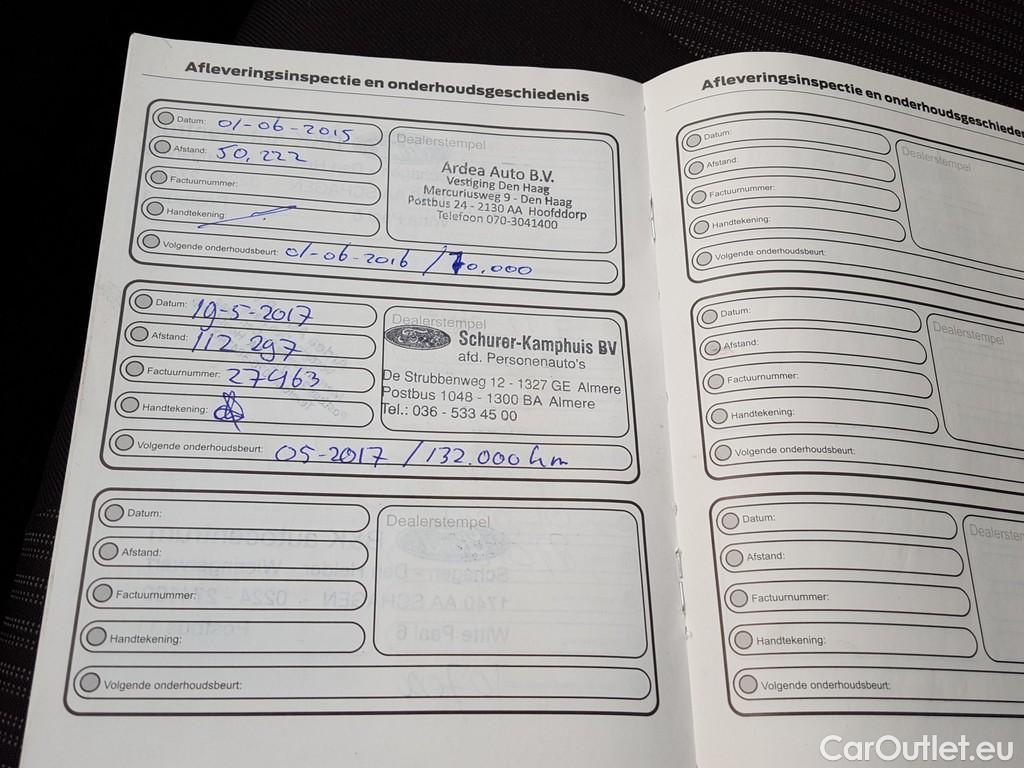 Afleveringsinspectie en onderhoudsgeschiedenis
Datum: 01-06-2015
Afstand: 50.222
Factuurnummer:
Handtekening:
Volgende onderhoudsbeurt: 01-06-2016 / 70.000
Dealerstempel
Ardea Auto B.V.
Vestiging Den Haag
Mercuriusweg 9 - Den Haag
Postbus 24 - 2130 AA Hoofddorp
Telefoon 070-3041400
Datum: 19-5-2017
Afstand: 112.297
Factuurnummer: 27463
Handtekening:
Volgende onderhoudsbeurt: 05-2017 / 132.000 km
Dealerstempel
Ford
Schurer-Kamphuis BV
afd. Personenauto's
De Strubbenweg 12 - 1327 GE Almere
Postbus 1048 - 1300 BA Almere
Tel.: 036 - 533 45 00
Datum:
Afstand:
Factuurnummer:
Handtekening:
Volgende onderhoudsbeurt:
Dealerstempel
Afleveringsinspectie en onderhoudsgeschieden
Datum:
Afstand:
Factuurnummer:
Handtekening:
Volgende onderhoudsbeurt:
Dealerstempel
Datum:
Afstand:
Factuurnummer:
Handtekening:
Volgende onderhoudsbeurt:
Dealerstempel
Datum:
Afstand:
Factuurnummer:
Handtekening:
Volgende onderhoudsbeurt:
Dealerstem
CarOutlet.eu